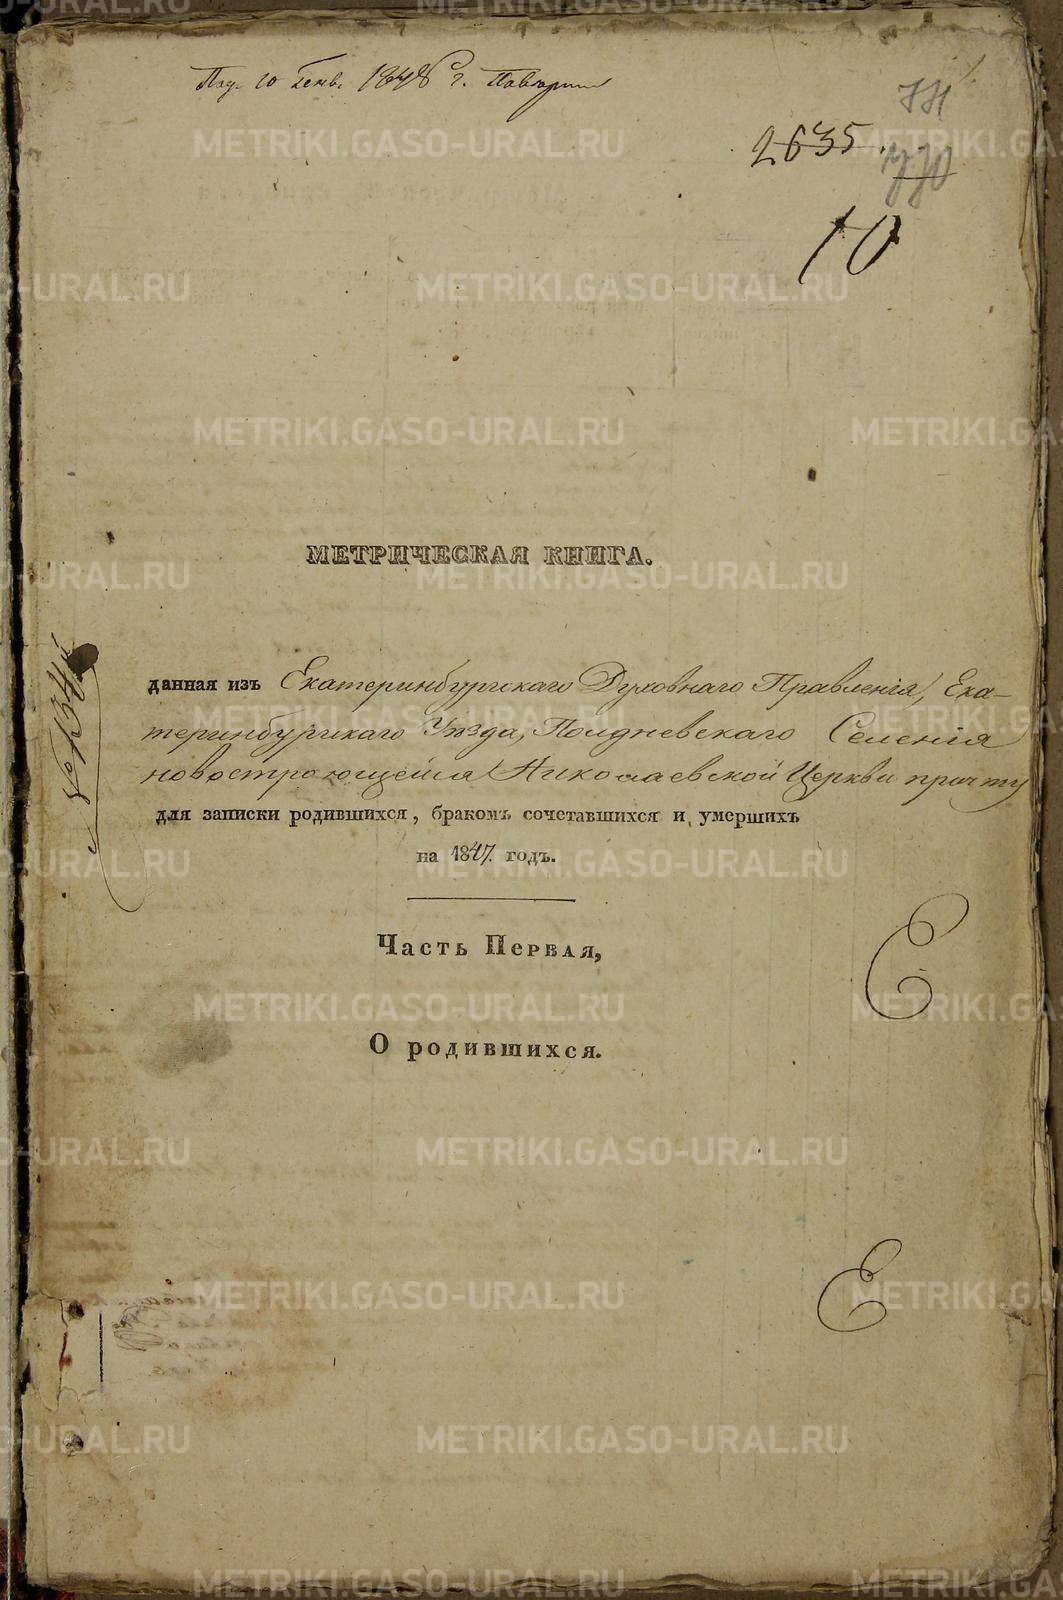 Под. 10 Генв. 1848 г.
771
2635.
770
10
МЕТРИЧЕСКАЯ КНИГА.
данная изъ Екатеринбургскаго Духовнаго Правленія, Ека-
теринбургскаго Уѣзда, Полдневскаго Селенія
новостроющейся Николаевской Церкви причту
для записки родившихся, бракомъ сочетавшихся и умершихъ
на 1847. годъ.
Часть Первая,
О родившихся.
METRIKI.GASO-URAL.RU